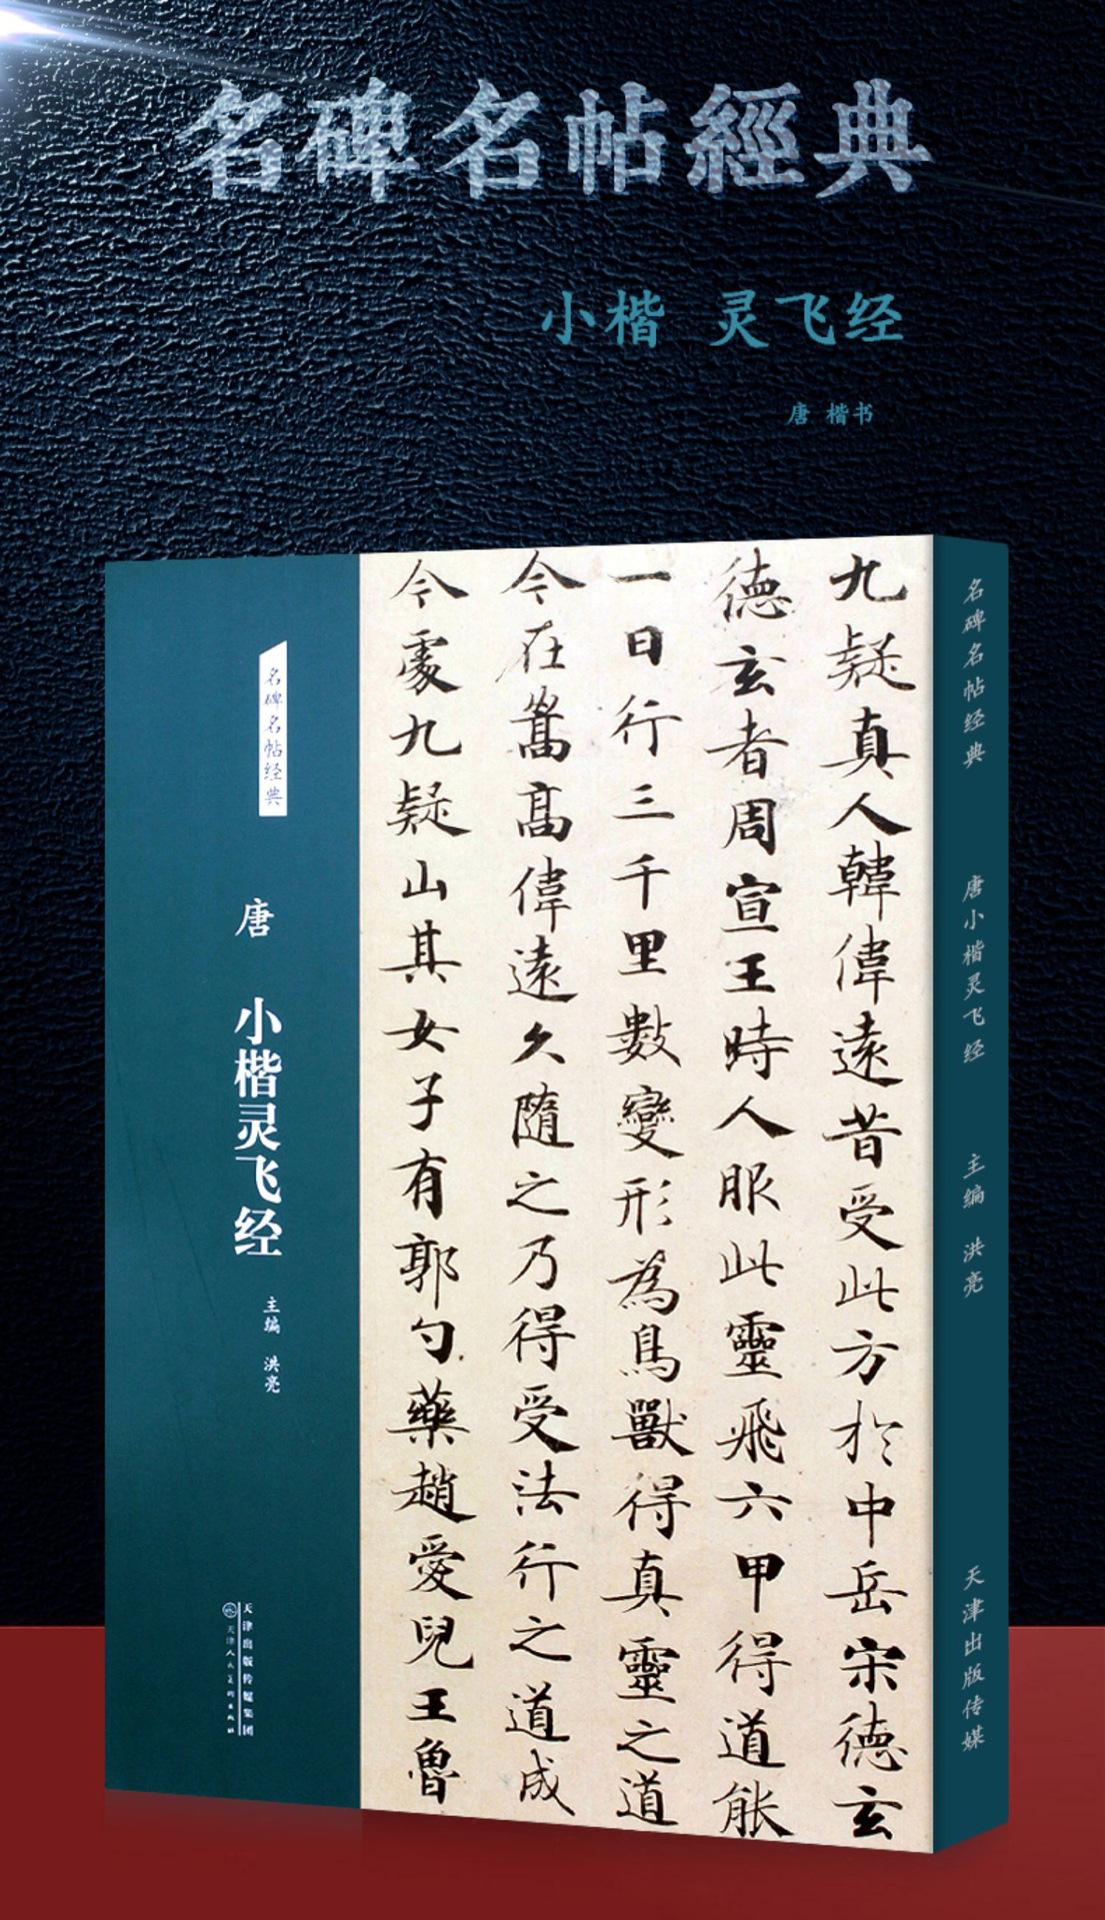 名碑名帖經典
小楷 灵飞经
唐 楷书
名碑名帖经典
唐 小楷灵飞经
主编 洪亮
天津出版传媒集团
天津人民美术出版社
九疑真人韓偉遠昔受此方於中岳宋德玄
德玄者周宣王時人服此靈飛六甲得道能
一日行三千里數變形為鳥獸得真靈之道
今在嵩高偉遠久隨之乃得受法行之道成
今處九疑山其女子有郭勺藥趙愛兒王魯
名碑名帖经典
唐小楷灵飞经
主编 洪亮
天津出版传媒